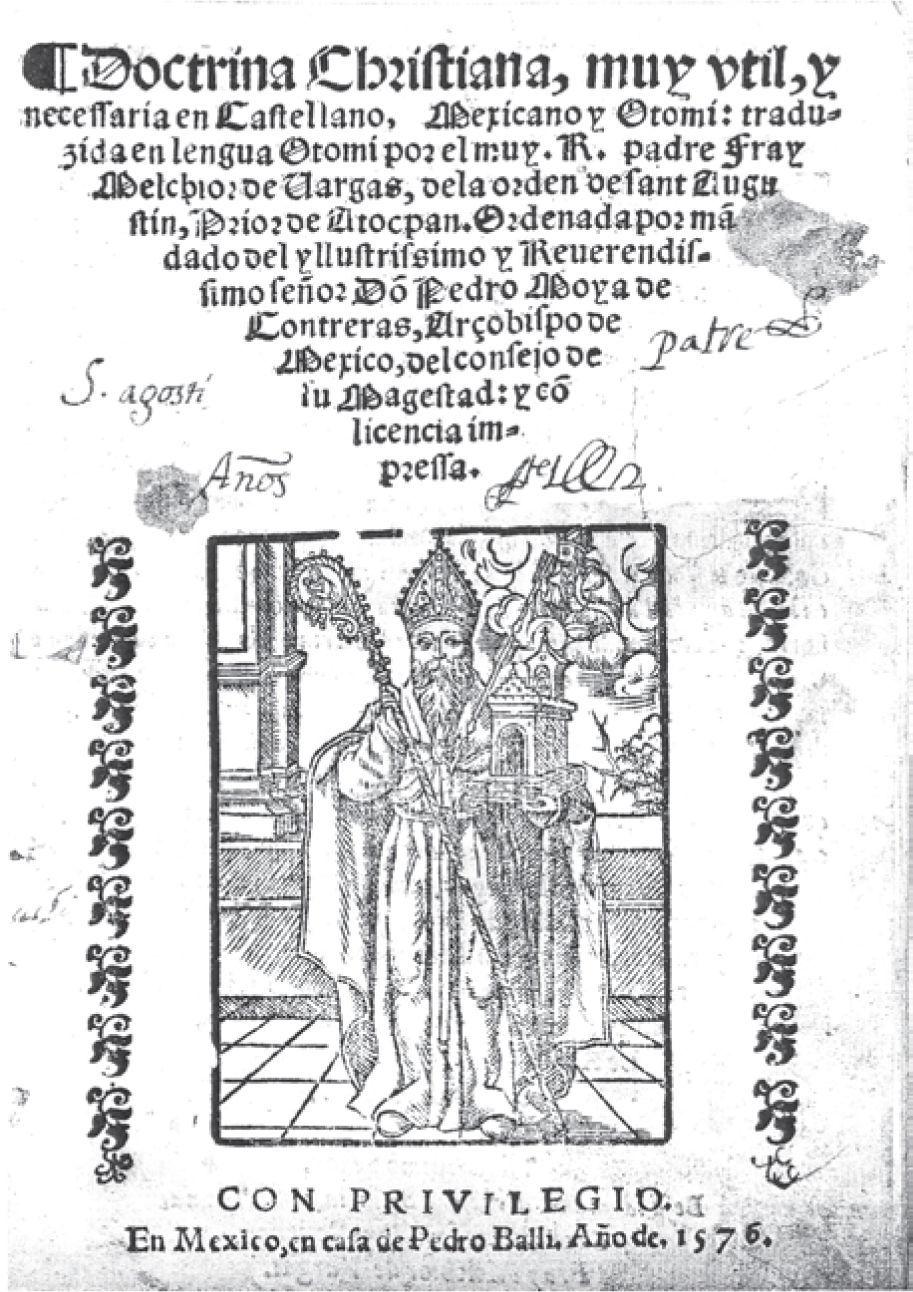 ¶ Doctrina Christiana, muy vtil, y
necessaria en Castellano, Mexicano y Otomi: tradu-
zida en lengua Otomi por el muy. R. padre Fray
Melchior de Uargas, de la orden de sant Augu
stin, Prior de Atocpan. Ordenada por mã
dado del yllustrissimo y Reuerendis-
simo señor Dõ Pedro Moya de
Contreras, Arçobispo de
Mexico, del consejo de
su Magestad: y cõ
licencia im-
pressa.
patre
S. agosti
Años
CON PRIVILEGIO.
En Mexico, en casa de Pedro Balli. Año de. 1576.